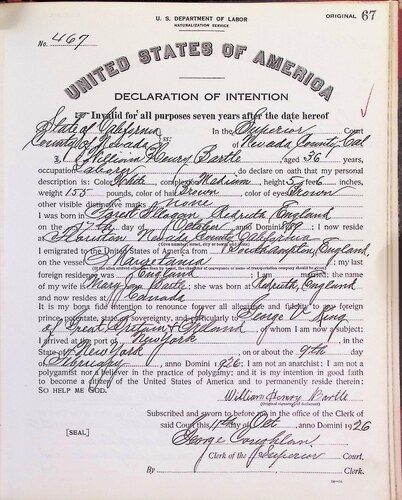 U. S. DEPARTMENT OF LABOR
NATURALIZATION SERVICE
ORIGINAL 67
No. 467
UNITED STATES OF AMERICA
DECLARATION OF INTENTION
Invalid for all purposes seven years after the date hereof
State of California
County of Nevada ss: In the Superior Court of Nevada County, Cal
I, William Henry Bartle aged 36 years,
occupation Laborer, do declare on oath that my personal
description is: Color White, complexion Medium, height 5 feet 6 inches,
weight 155 pounds, color of hair Brown, color of eyes Brown
other visible distinctive marks None
I was born in Redruth, England
on the 17th day of October, anno Domini 1889; I now reside
at Nevada County California
I emigrated to the United States of America from Southampton, England,
on the vessel Mauretania; my last
foreign residency was England; I am married; the name
of my wife is Mary Jan Bartle; she was born at Redruth, England
and now resides at Canada
It is my bona fide intention to renounce forever all allegiance and fidelity to any foreign
prince, potentate, state, or sovereignty, and particularly to George V. King
of Great Britain & Ireland, of whom I am now a subject;
I arrived at the port of New York, in the
State of New York, on or about the 9th day
of February, anno Domini 1926; I am not an anarchist; I am not a
polygamist nor a believer in the practice of polygamy; and it is my intention in good faith
to become a citizen of the United States of America and to permanently reside therein:
SO HELP ME GOD.
William Henry Bartle
(Original signature of declarant)
Subscribed and sworn to before me in the office of the Clerk of
said Court this 11th day of Oct. anno Domini 1926
[SEAL]
George Coughlan
Clerk of the Superior Court.
By , Clerk.